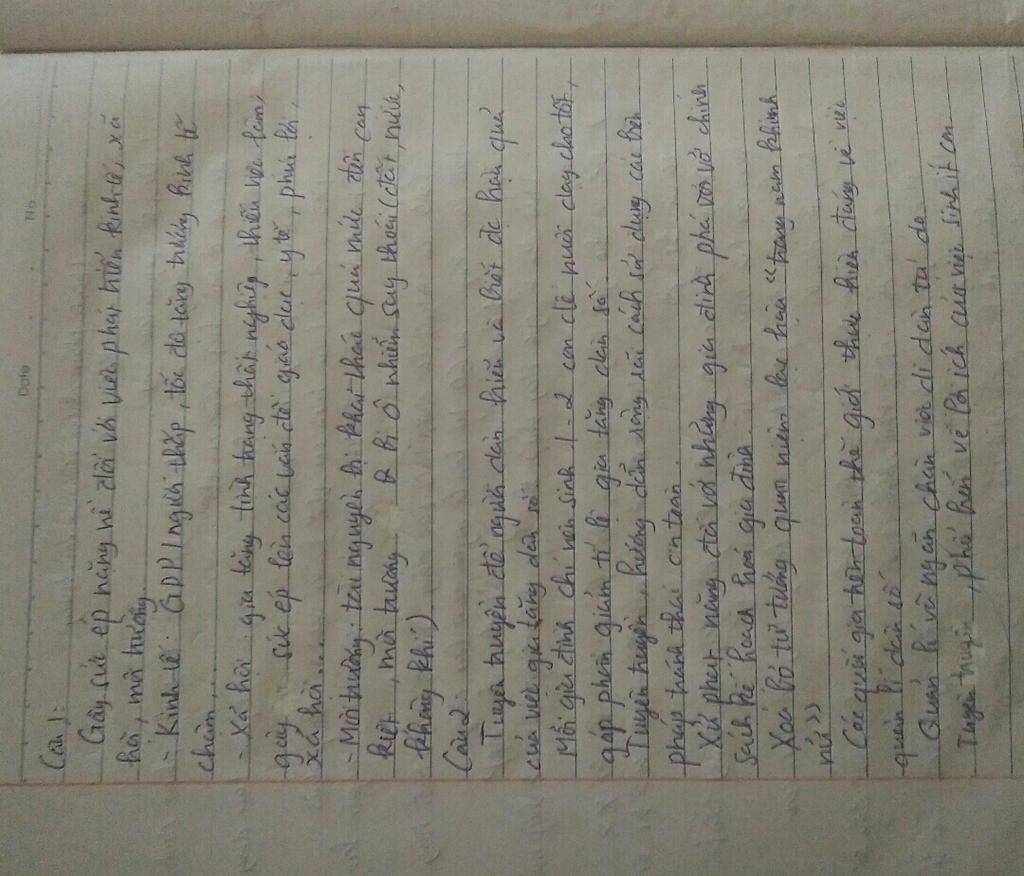 No
Date
Câu 1:
Gây sức ép nặng nề đối với việc phát triển kinh tế, xã
hội, môi trường.
- Kinh tế: GDP/người thấp, tốc độ tăng trưởng kinh tế
chậm,...
- Xã hội: gia tăng tình trạng thất nghiệp, thiếu việc làm,
gây sức ép lên các vấn đề giáo dục, y tế, phúc lợi
xã hội....
- Môi trường: tài nguyên bị khai thác quá mức dẫn đến cạn
kiệt, môi trường bị ô nhiễm suy thoái (đất, nước,
không khí)
Câu 2:
Tuyên truyền để người dân hiểu và biết dc hậu quả
của việc gia tăng dân số.
Mỗi gia đình chỉ nên sinh 1-2 con để nuôi dạy cho tốt,
góp phần giảm tỉ lệ gia tăng dân số.
Tuyên truyền, hướng dẫn rộng rãi cách sử dụng các biện
pháp tránh thai an toàn.
Xử phạt nặng đối với những gia đình phá vỡ chính
sách kế hoạch hoá gia đình.
Xoá bỏ tư tưởng quan niệm lạc hậu "trọng nam khinh
nữ"
Các quốc gia trên toàn thế giới thực hiện đúng về việc
quản lí dân số
Quản lí và ngăn chặn việc di dân tự do
Tuyên truyền, phổ biến về lợi ích của việc sinh ít con